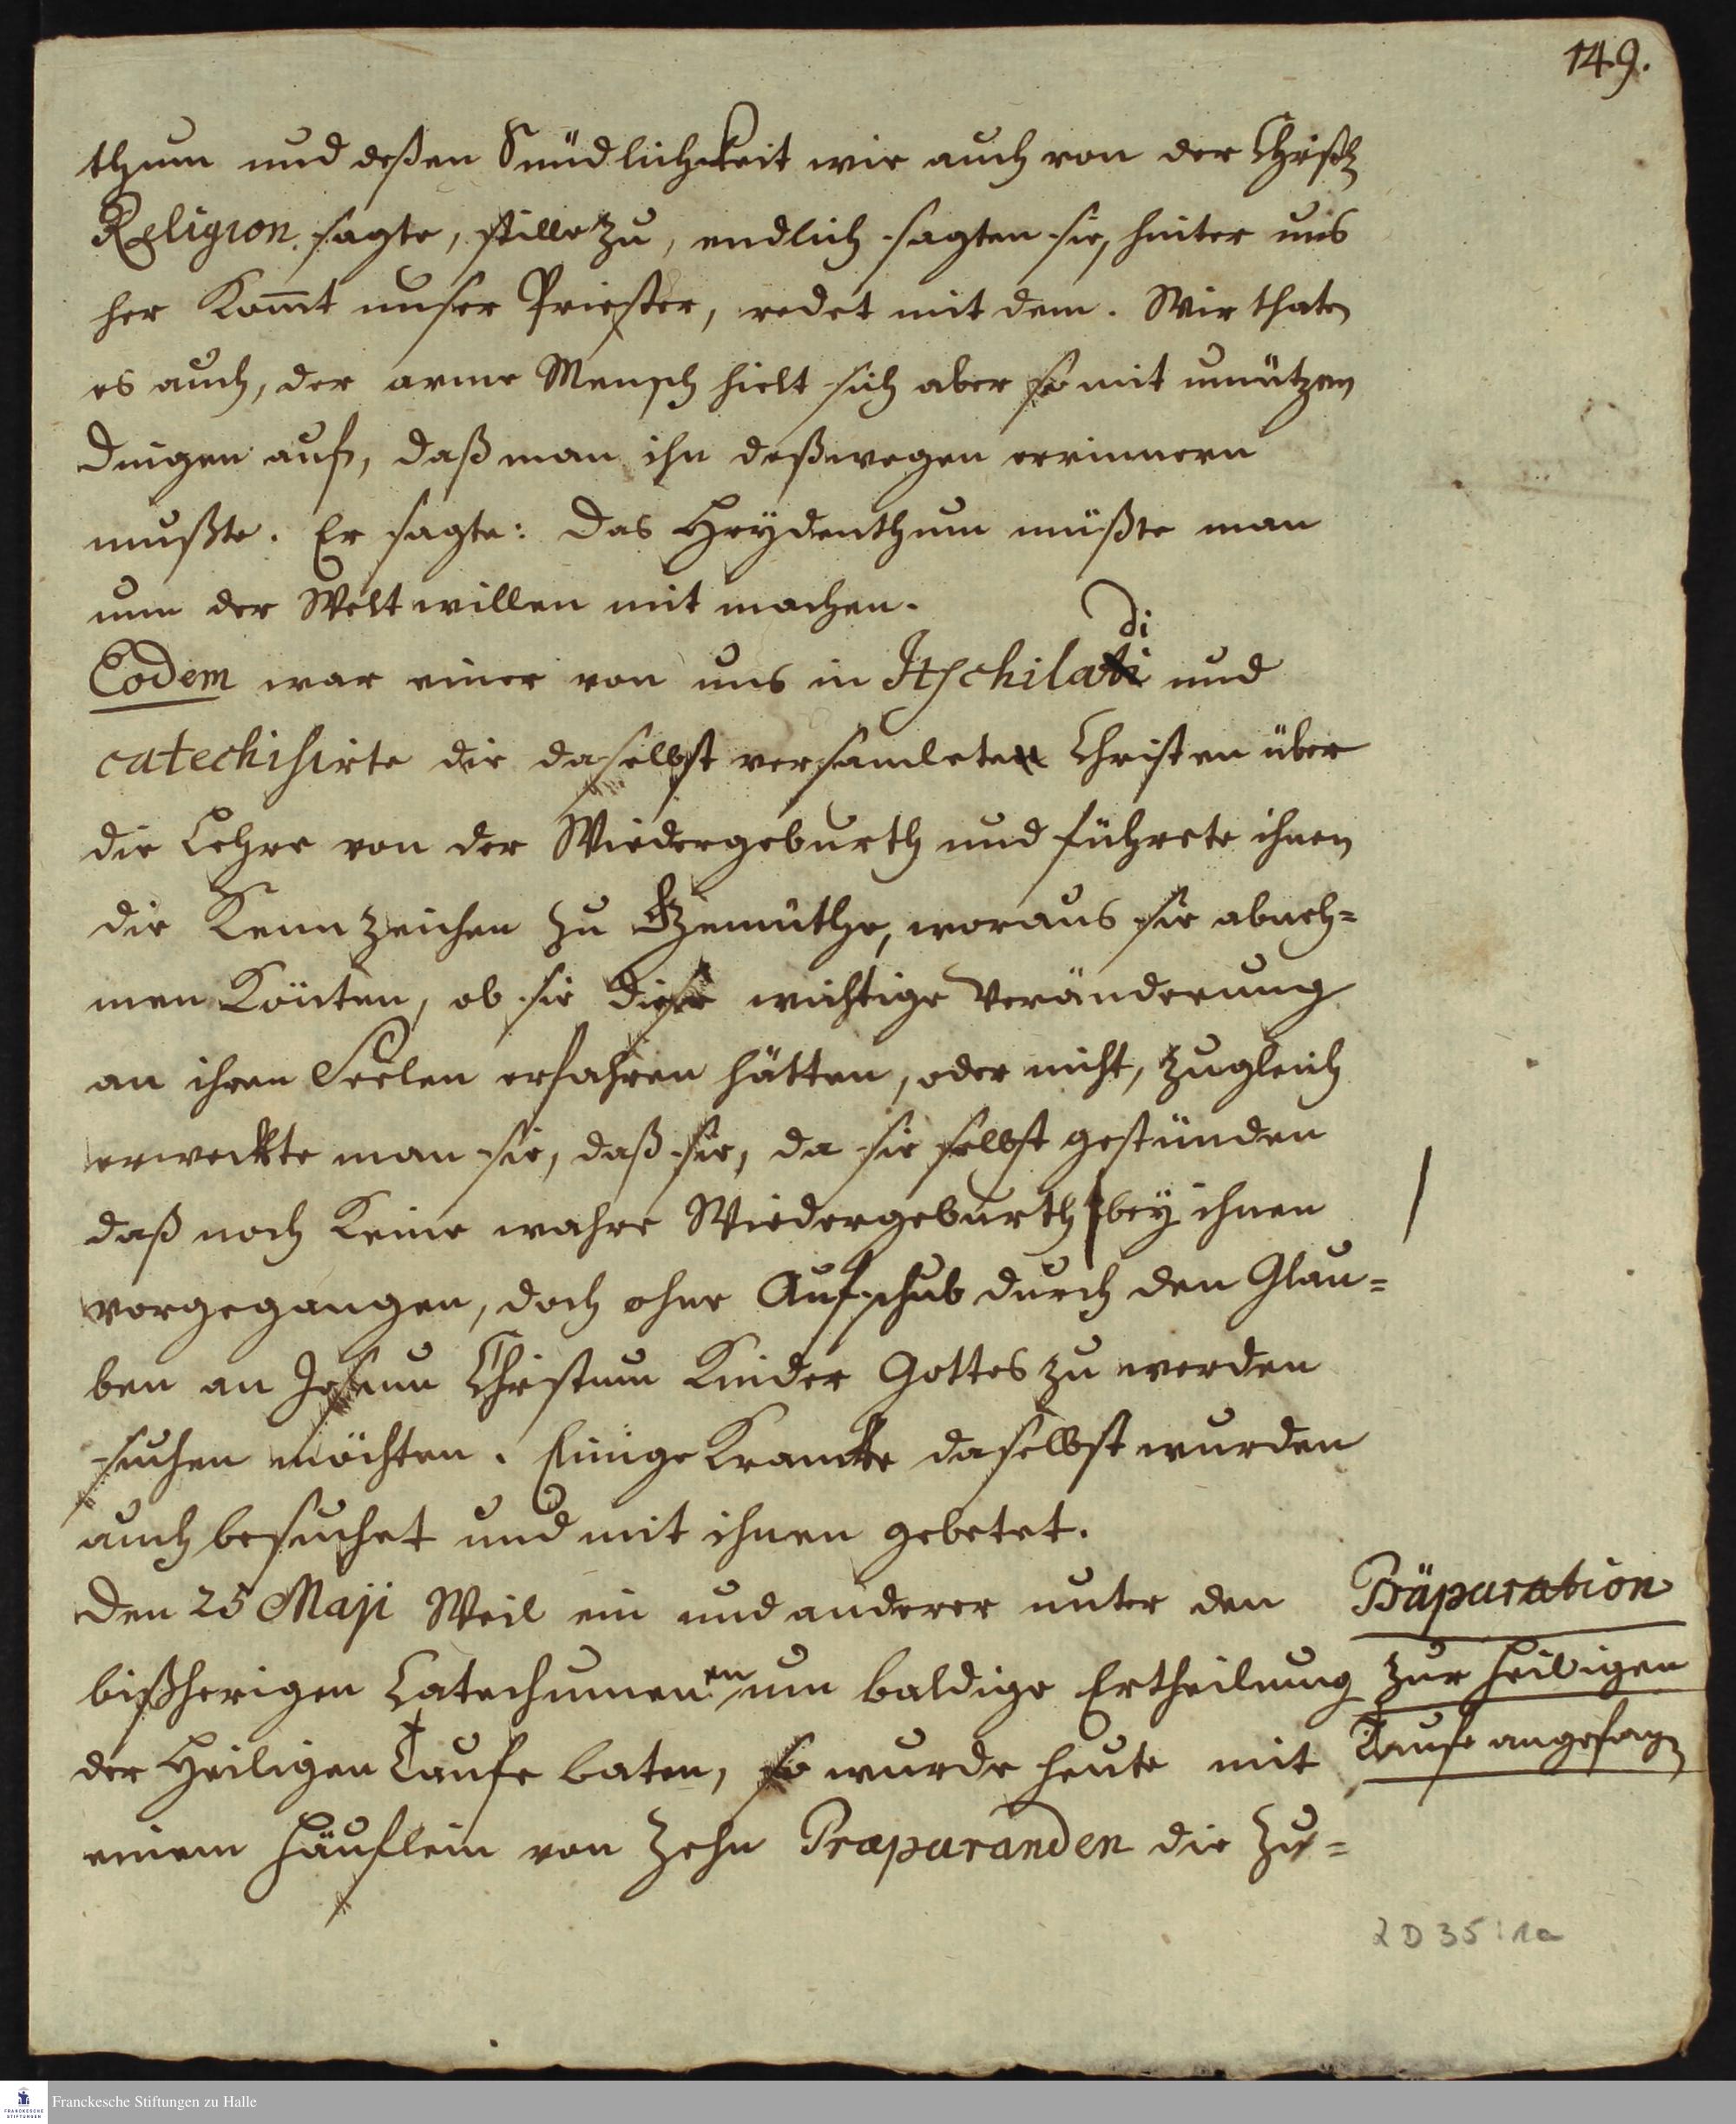 149.
thum und deßen Sündlichkeit wie auch von der Christl
Religion sagte, stille zu, endlich sagten sie, hinter uns
her kom̄t unser Priester, redet mit dem. Wir thaten
es auch, der arme Mensch hielt sich aber so mit unützen
Dingen auf, daß man ihn deßwegen erinnern
mußte. Er sagte: Das Heydenthum müßte man
um der Welt willen mit machen.
Eodem war einer von uns in Itschiladi und
catechisirte die daselbst versamleten Christen über
die Lehre von der Wiedergeburth und führete ihnen
die Kennzeichen zu Gemüthe, woraus sie abneh=
men könten, ob sie diese wichtige Veränderung
an ihren Seelen erfahren hätten, oder nicht, zugleich
erweckte man sie, daß sie, da sie selbst gestünden
daß noch keine wahre Wiedergeburth bey ihnen
vorgegangen, doch ohne Aufschub durch den Glau=
ben an Jesum Christum Kinder Gottes zu werden
suchen möchten. Einige Krancke daselbst wurden
auch besuchet und mit ihnen gebetet.
Den 25 Maji Weil ein und anderer unter den
bißherigen Catechumenen um baldige Ertheilung
der Heiligen Taufe baten, so wurde heute mit
einem Häuflein von zehn Præparanden die Zu=
Präparation
zur heiligen
Taufe angefang
2 D 35 : 1a
Franckesche Stiftungen zu Halle
FRANCKESCHE
STIFTUNGEN